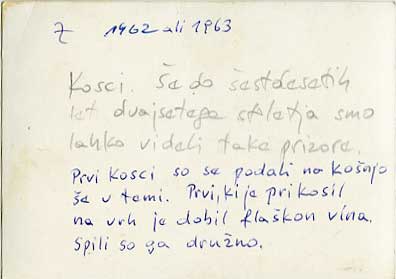 Z 1962 ali 1963
Kosci. Še do šestdesetih
let dvajsetega stoletja smo
lahko videli take prizore.
Prvi kosci so se podali na košnjo
še v temi. Prvi, ki je prikosil
na vrh je dobil flaškon vina.
Spili so ga družno.